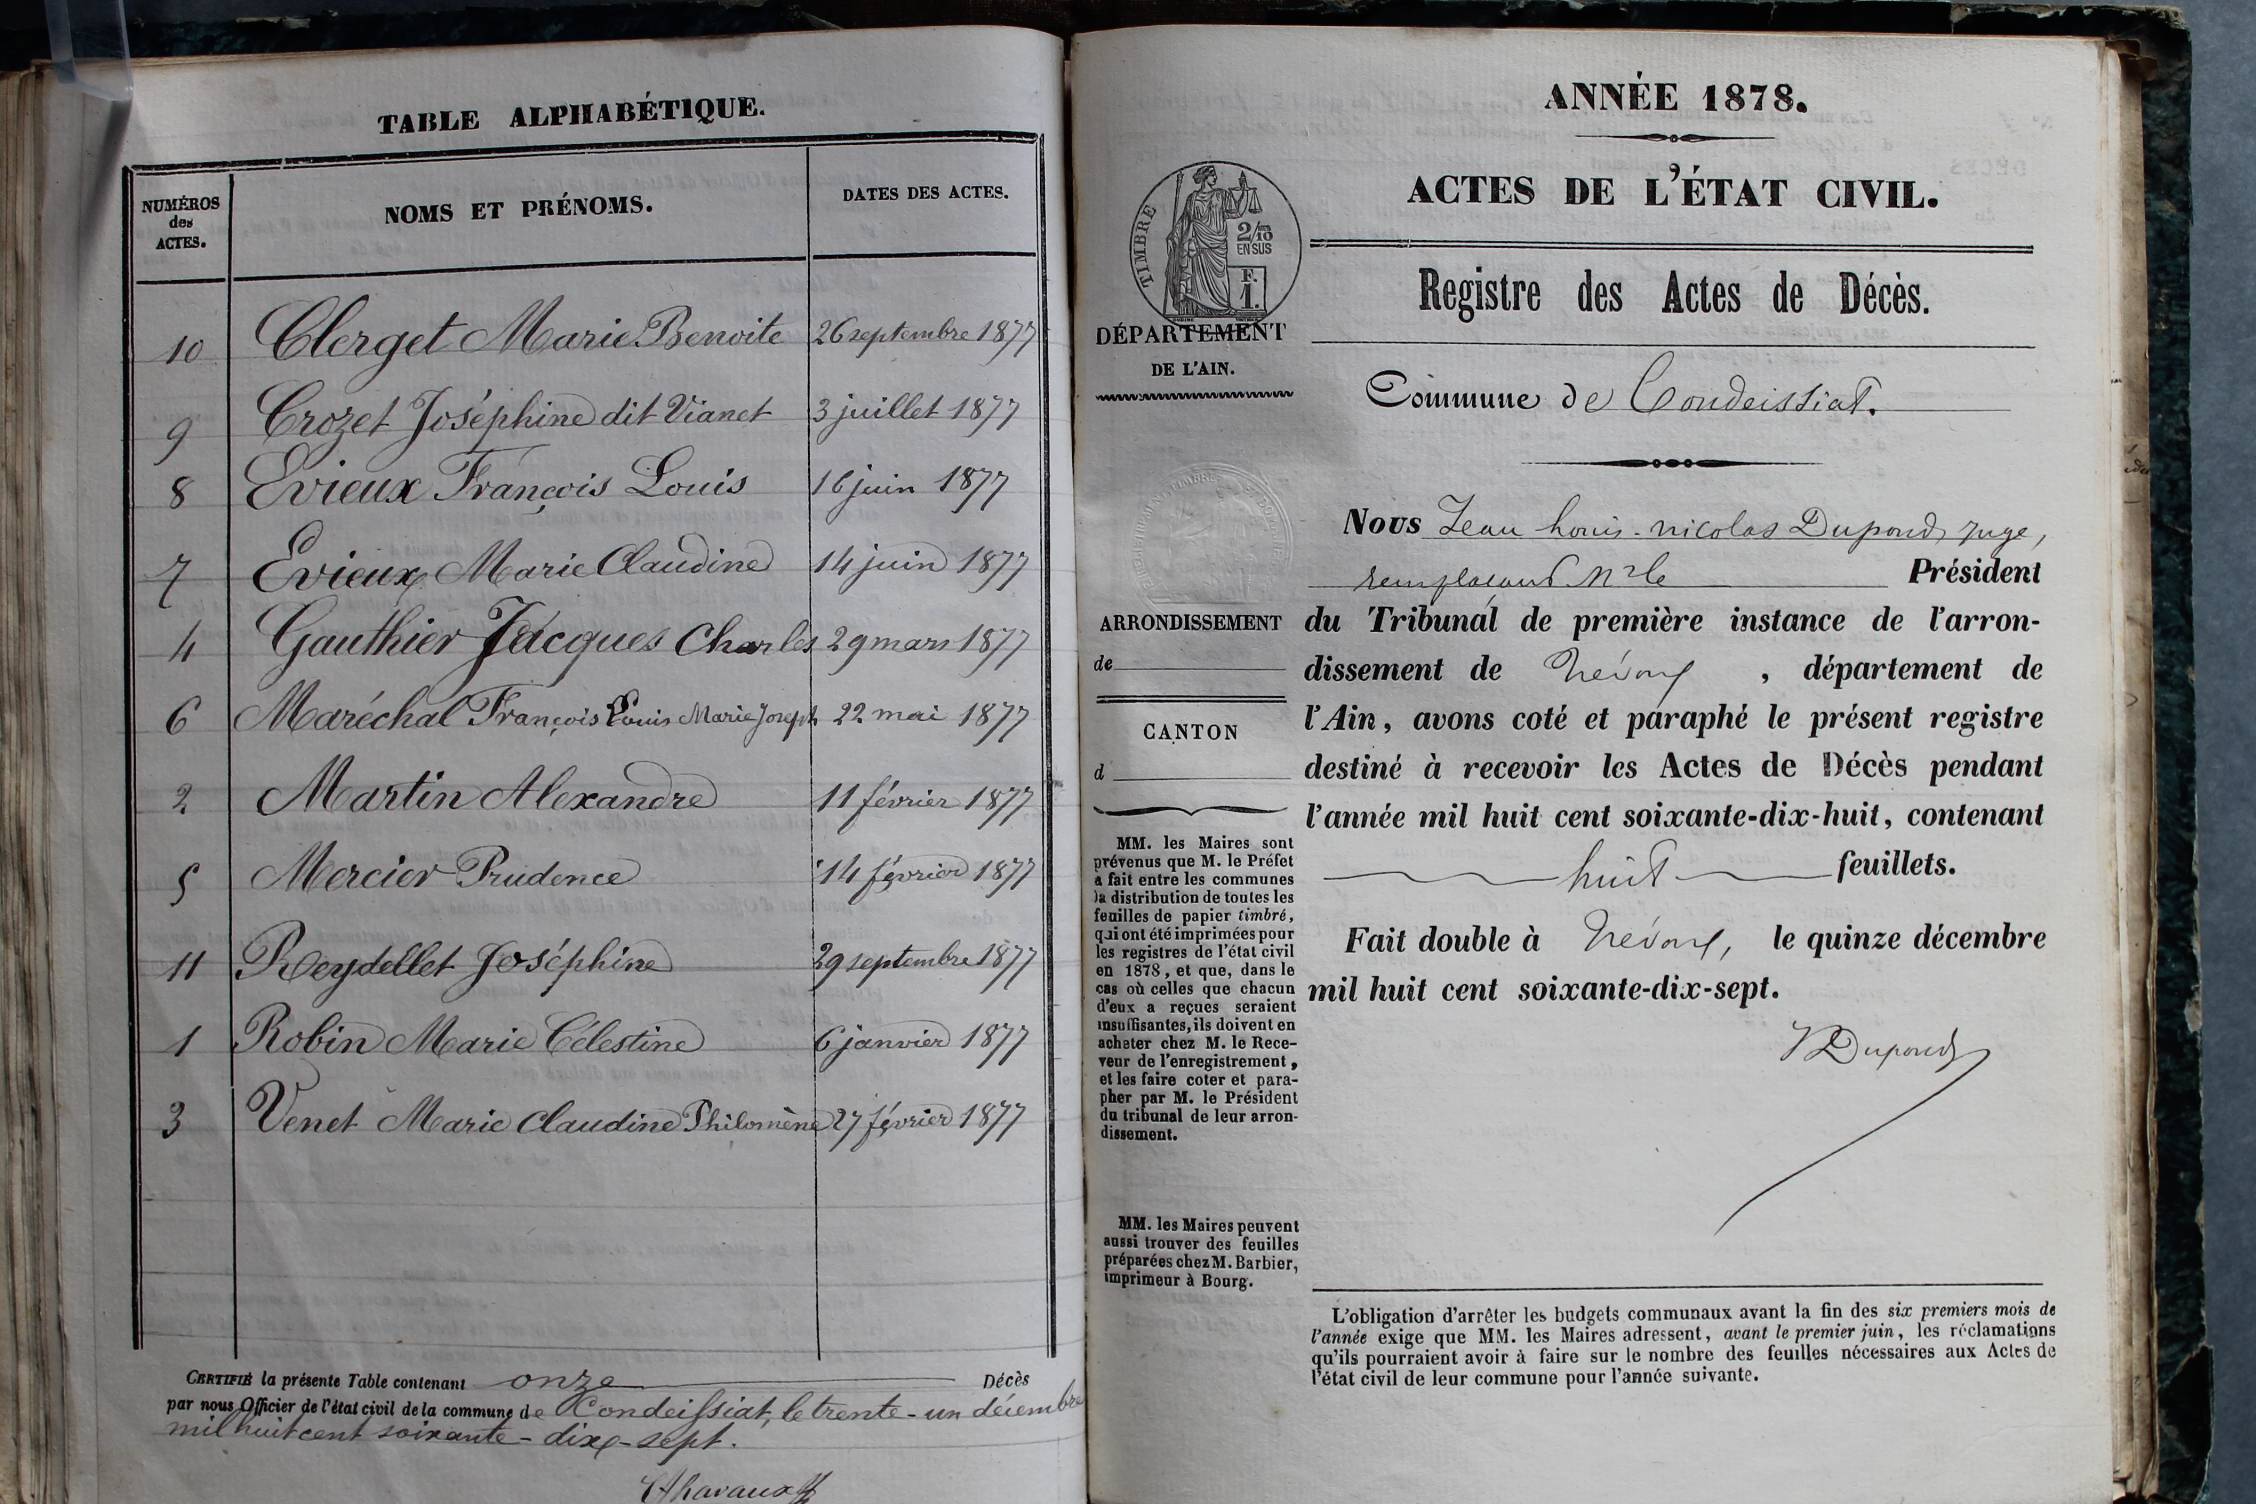 TABLE ALPHABÉTIQUE.
NUMÉROS
des
ACTES.
NOMS ET PRÉNOMS.
DATES DES ACTES.
10 Clerget Marie Benoite 26 septembre 1877
9 Crozet Joséphine dit Vianet 3 juillet 1877
8 Evieux François Louis 16 juin 1877
7 Evieux Marie Claudine 14 juin 1877
4 Gauthier Jacques Charles 29 mars 1877
6 Maréchal François Louis Marie Joseph 22 mai 1877
2 Martin Alexandre 11 février 1877
5 Mercier Prudence 14 février 1877
11 Reydellet Joséphine 29 septembre 1877
1 Robin Marie Célestine 6 janvier 1877
3 Venet Marie Claudine Philomène 27 février 1877
CERTIFIÉ la présente Table contenant onze Décès
par nous Officier de l'état civil de la commune de Condeissiat, le trente-un décembre
mil huit cent soixante-dix-sept.
ANNÉE 1878.
ACTES DE L'ÉTAT CIVIL.
TIMBRE
2/10
EN SUS
F.
1.
DÉPARTEMENT
DE L'AIN.
Registre des Actes de Décès.
Commune de Condeissiat.
Nous Jean Louis-Nicolas Dupond, Juge,
remplaçant Mr le Président
du Tribunal de première instance de l'arron-
dissement de Trévoux, département de
l'Ain, avons coté et paraphé le présent registre
destiné à recevoir les Actes de Décès pendant
l'année mil huit cent soixante-dix-huit, contenant
huit feuillets.
Fait double à Trévoux, le quinze décembre
mil huit cent soixante-dix-sept.
Dupond
ARRONDISSEMENT
de
CANTON
d
MM. les Maires sont
prévenus que M. le Préfet
a fait entre les communes
la distribution de toutes les
feuilles de papier timbré,
qui ont été imprimées pour
les registres de l'état civil
en 1878, et que, dans le
cas où celles que chacun
d'eux a reçues seraient
insuffisantes, ils doivent en
acheter chez M. le Rece-
veur de l'enregistrement,
et les faire coter et para-
pher par M. le Président
du tribunal de leur arron-
dissement.
MM. les Maires peuvent
aussi trouver des feuilles
préparées chez M. Barbier,
imprimeur à Bourg.
L'obligation d'arrêter les budgets communaux avant la fin des six premiers mois de
l'année exige que MM. les Maires adressent, avant le premier juin, les réclamations
qu'ils pourraient avoir à faire sur le nombre des feuilles nécessaires aux Actes de
l'état civil de leur commune pour l'année suivante.